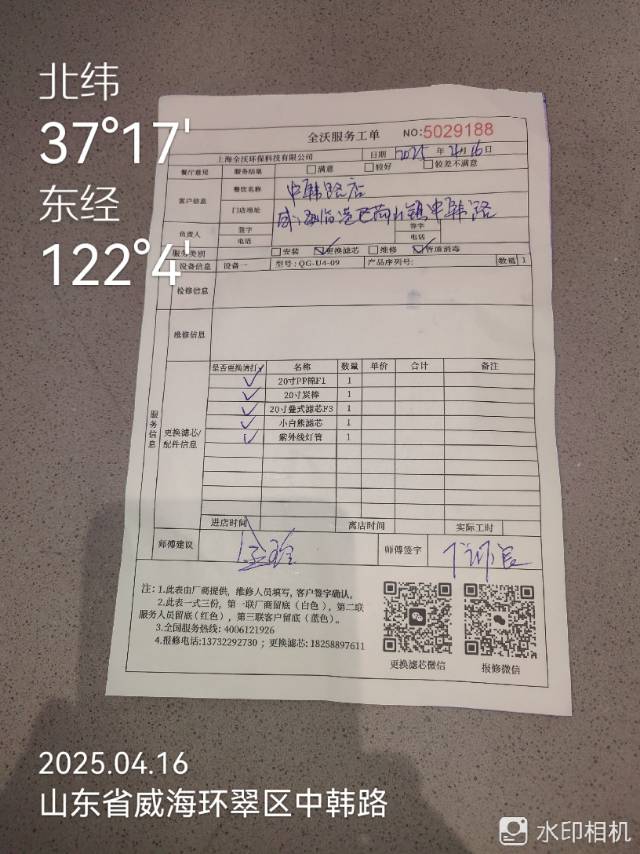 北纬
37°17'
东经
122°4'
全沃服务工单 NO:5029188
上海全沃环保科技有限公司 日期 2025 年 4 月 16 日
餐厅意见 服务结果 满意 较好 较差不满意
客户信息 餐饮名称 中韩路店
门店地址 镇中韩路
负责人 签字 签字
电话 电话
服务类别 安装 更换滤芯 维修 管道消毒
设备信息 设备一 型号:QG-U4-09 产品序列号: 数量 1
检修信息
维修信息
服务信息
更换滤芯/配件信息
是否更换请打✓ 名称 数量 单价 合计 备注
✓ 20寸PP棉F1 1
✓ 20寸炭棒 1
✓ 20寸叠式滤芯F3 1
✓ 小白熊滤芯 1
✓ 紫外线灯管 1
进店时间 离店时间 实际工时
师傅建议 师傅签字
注:1.此表由厂商提供,维修人员填写,客户签字确认。
2.此表一式三份,第一联厂商留底(白色),第二联
服务人员留底(红色),第三联客户留底(蓝色)。
3.全国服务热线:4006121926
4.报修电话:13732292730;更换滤芯:18258897611
更换滤芯微信 报修微信
2025.04.16
山东省威海环翠区中韩路
水印相机